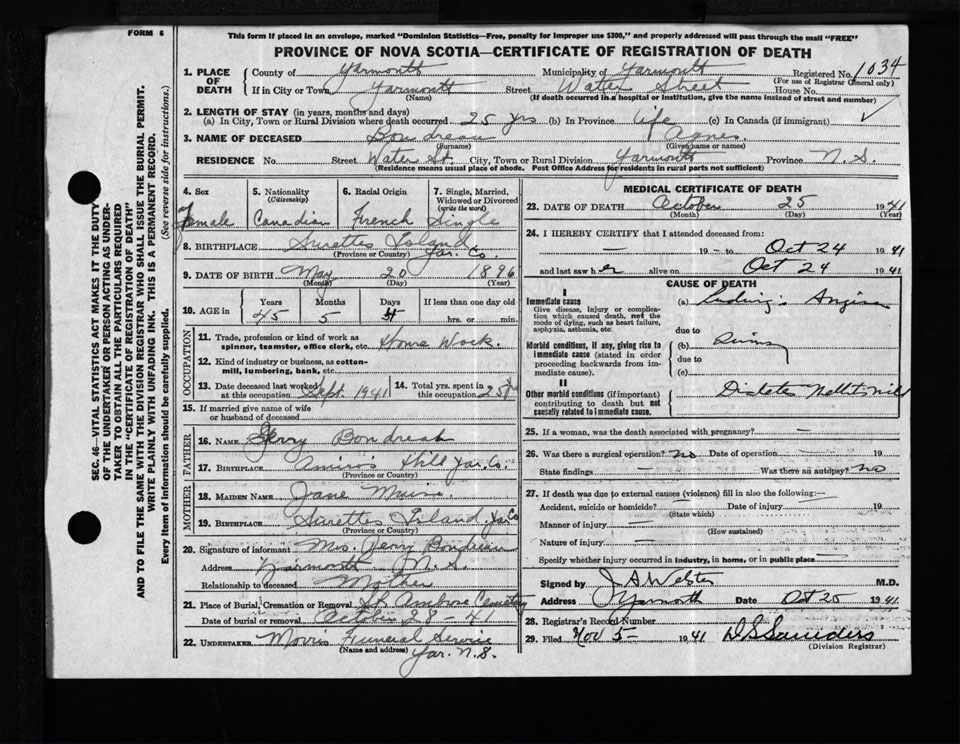 FORM 6
This form if placed in an envelope, marked "Dominion Statistics—Free, penalty for improper use $300," and properly addressed will pass through the mail "FREE"
PROVINCE OF NOVA SCOTIA—CERTIFICATE OF REGISTRATION OF DEATH
1. PLACE OF DEATH County of Yarmouth Municipality of Yarmouth Registered No. 1034
(For use of Registrar General only)
If in City or Town Yarmouth Street Water Street House No.
(Name) (If death occurred in a hospital or institution, give the name instead of street and number)
2. LENGTH OF STAY (in years, months and days)
(a) In City, Town or Rural Division where death occurred 25 yrs (b) In Province life (c) In Canada (if immigrant)
3. NAME OF DECEASED Boudreau Agnes.
(Surname) (Given name or names)
RESIDENCE No. Street Water St. City, Town or Rural Division Yarmouth Province N.S.
(Residence means usual place of abode. Post Office Address for residents in rural parts not sufficient)
4. Sex Female
5. Nationality (Citizenship) Canadian
6. Racial Origin French
7. Single, Married, Widowed or Divorced (write the word) Single
8. BIRTHPLACE Surettes Island Yar. Co.
(Province or Country)
9. DATE OF BIRTH May 20 1896
(Month) (Day) (Year)
10. AGE in Years 45 Months 5 Days If less than one day old hrs. or min.
OCCUPATION
11. Trade, profession or kind of work as spinner, teamster, office clerk, etc. House Work.
12. Kind of industry or business, as cotton-mill, lumbering, bank, etc.
13. Date deceased last worked at this occupation Sept. 1941 14. Total yrs. spent in this occupation 25
15. If married give name of wife or husband of deceased
FATHER
16. NAME Boudreau
17. BIRTHPLACE Amiro's Hill Yar. Co.
MOTHER
18. MAIDEN NAME Jane
19. BIRTHPLACE Surettes Island Yar. Co
(Province or Country)
20. Signature of informant Mrs. Boudreau
Address Yarmouth N.S.
Relationship to deceased Mother
21. Place of Burial, Cremation or Removal St. Ambrose Cemetery
Date of burial or removal October 28 - 41
22. UNDERTAKER Morris Funeral Service
(Name and address) Yar. N.S.
MEDICAL CERTIFICATE OF DEATH
23. DATE OF DEATH October 25 1941
(Month) (Day) (Year)
24. I HEREBY CERTIFY that I attended deceased from:
— 19 – to Oct 24 1941
and last saw her alive on Oct 24 1941
CAUSE OF DEATH
I
Immediate cause
Give disease, injury or complication which caused death, not the mode of dying, such as heart failure, asphyxia, asthenia, etc.
(a) Angina
due to
Morbid conditions, if any, giving rise to immediate cause (stated in order proceeding backwards from immediate cause).
(b)
due to
(c)
II
Other morbid conditions (if important) contributing to death but not causally related to immediate cause. Diabetes
25. If a woman, was the death associated with pregnancy? —
26. Was there a surgical operation? no Date of operation — 19
State findings — Was there an autopsy? no
27. If death was due to external causes (violence) fill in also the following:—
Accident, suicide or homicide? — Date of injury 19
(State which)
Manner of injury —
(How sustained)
Nature of injury —
Specify whether injury occurred in industry, in home, or in public place —
Signed by J A Webster M.D.
Address Yarmouth Date Oct 25 1941.
28. Registrar's Record Number
29. Filed Nov 5- 1941 Saunders
(Division Registrar)
SEC. 46—VITAL STATISTICS ACT MAKES IT THE DUTY
OF THE UNDERTAKER OR PERSON ACTING AS UNDER-
TAKER TO OBTAIN ALL THE PARTICULARS REQUIRED
IN THE "CERTIFICATE OF REGISTRATION OF DEATH"
AND TO FILE THE SAME WITH THE DIVISION REGISTRAR WHO SHALL ISSUE THE BURIAL PERMIT.
WRITE PLAINLY WITH UNFADING INK. THIS IS A PERMANENT RECORD.
Every item of information should be carefully supplied. (See reverse side for instructions.)